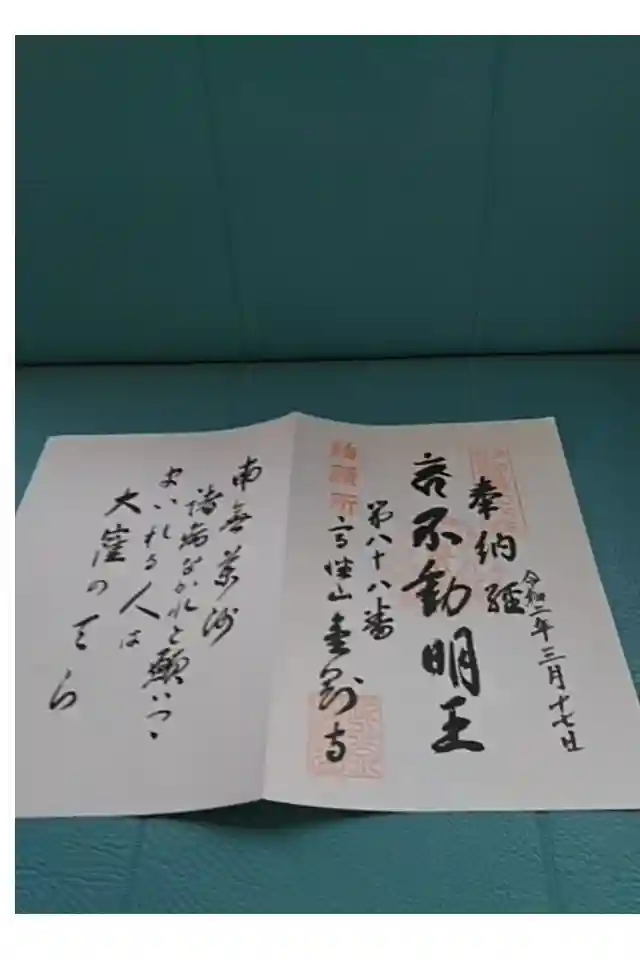 令和二年三月十七日
奉納経
不動明王
第八十八番
結願所
金剛寺
南無薬師
諸病なかれと願いつゝ
まいれる人は
大窪のてら